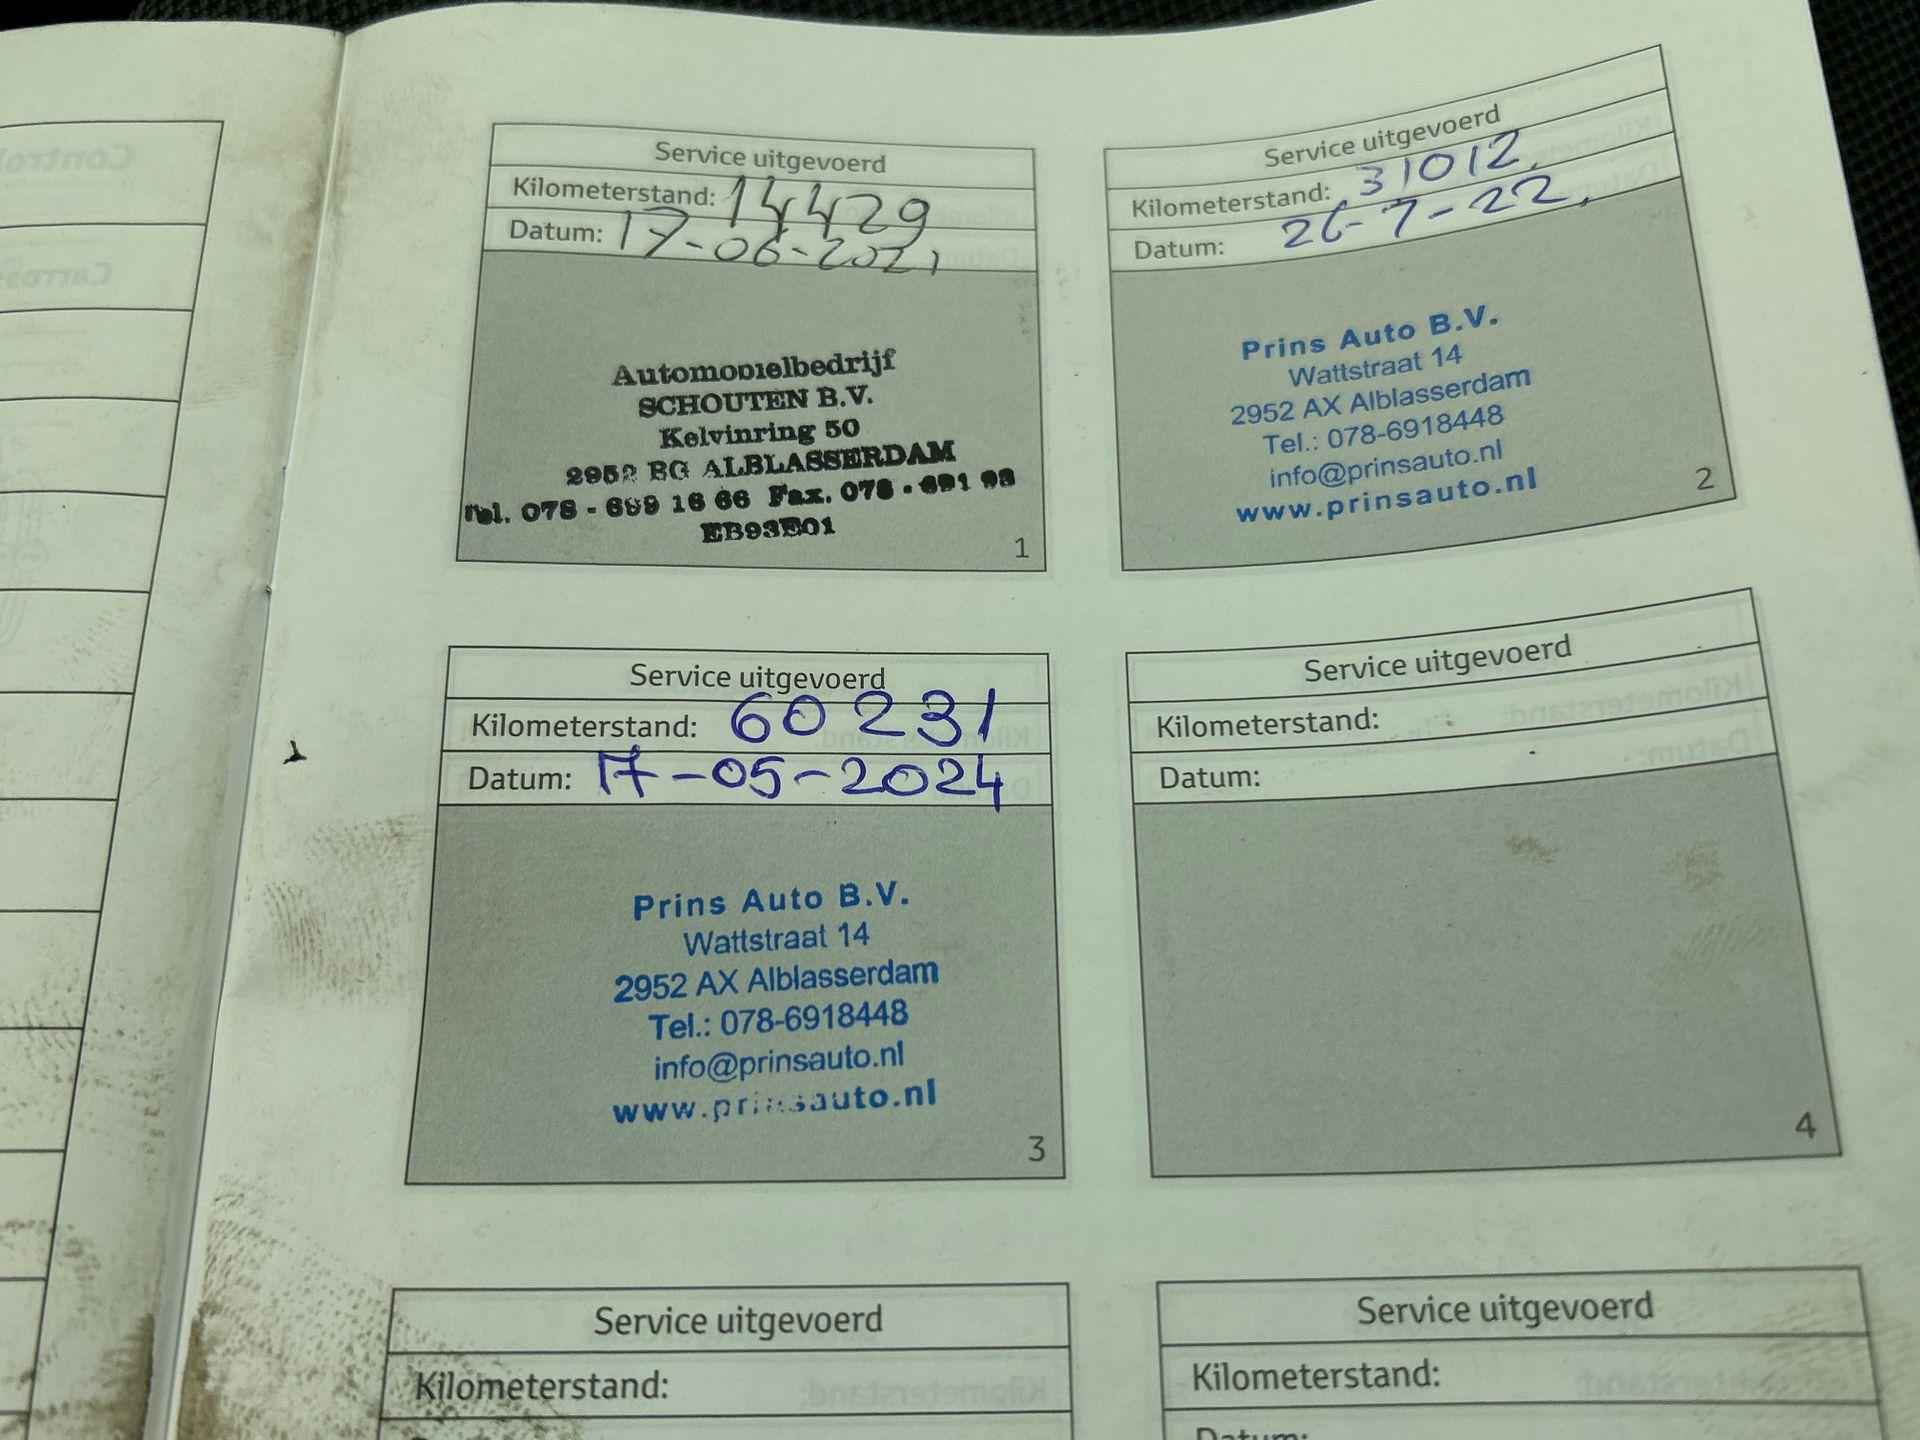 Service uitgevoerd
Kilometerstand: 14429
Datum: 17-06-2021
Automobielbedrijf
SCHOUTEN B.V.
Kelvinring 50
2952 BG ALBLASSERDAM
Tel. 078 - 699 16 66 Fax. 078 - 691 98
EB93E01
1
Service uitgevoerd
Kilometerstand: 31012
Datum: 26-7-22
Prins Auto B.V.
Wattstraat 14
2952 AX Alblasserdam
Tel.: 078-6918448
info@prinsauto.nl
www.prinsauto.nl
2
Service uitgevoerd
Kilometerstand: 60231
Datum: 17-05-2024
Prins Auto B.V.
Wattstraat 14
2952 AX Alblasserdam
Tel.: 078-6918448
info@prinsauto.nl
www.prinsauto.nl
3
Service uitgevoerd
Kilometerstand:
Datum:
4
Service uitgevoerd
Kilometerstand:
Service uitgevoerd
Kilometerstand:
Datum: